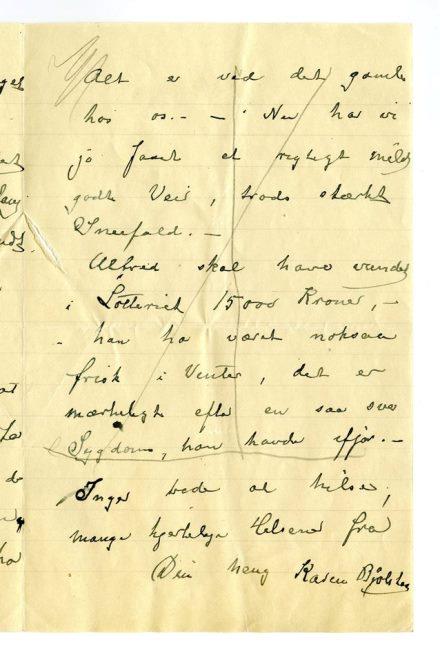 Alt er ved det gamle
hos os. — — Nu har vi
jo faaet et rigtigt mildt
godt Veir, trods stærkt
Sneefald. —
Alfred skal have vundet
i Lotteriet 15000 Kroner, —
— han har været noksaa
frisk i Vinter, det er
mærkeligt efter en saa svær
Sygdom, han havde ifjor. —
Inger bede at hilse,
mange hjertelige Helsener fra
Din heng Karen